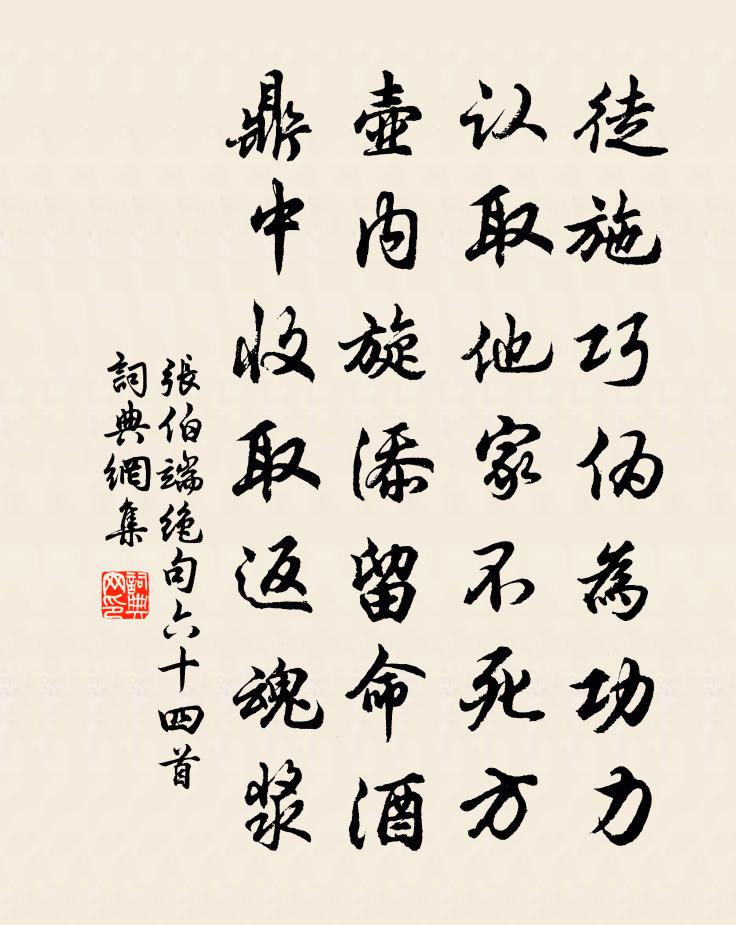 徒施巧偽為功力
认取他家不死方
壺内旋添留命酒
鼎中收取返魂漿
張伯端绝句六十四首
詞典網集
詞典网印